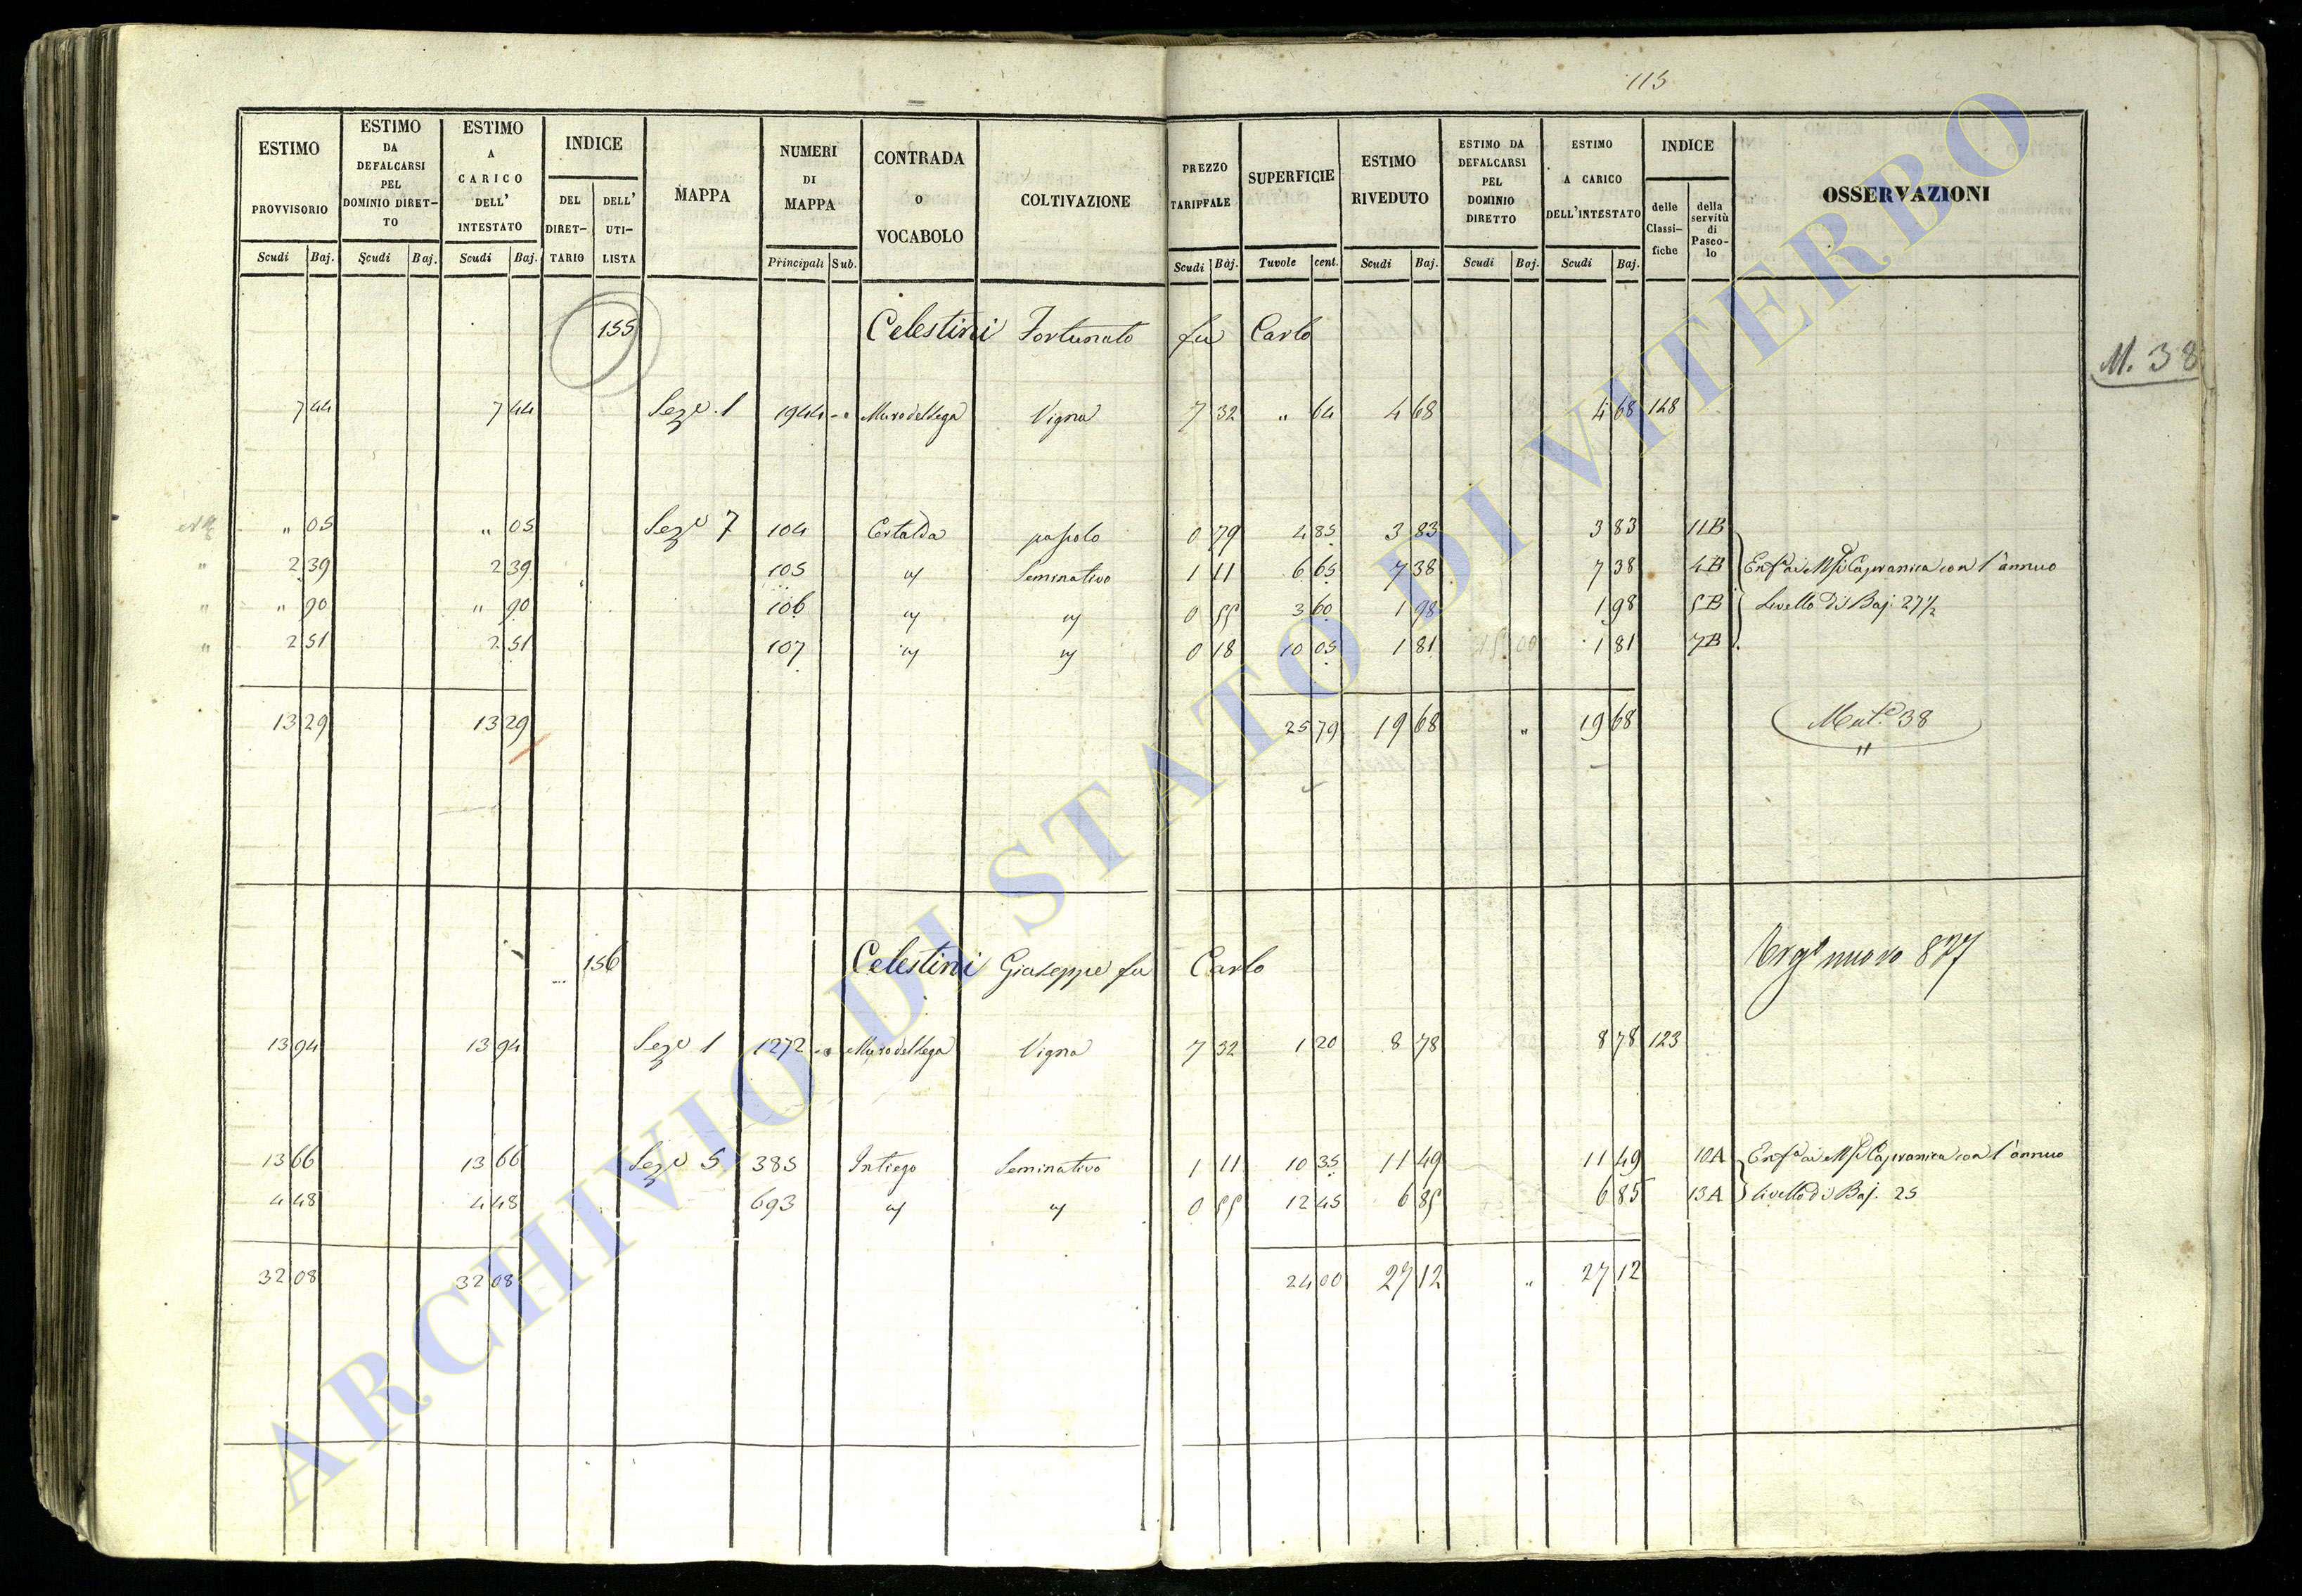 115
ESTIMO PROVVISORIO
ESTIMO DA DEFALCARSI PEL DOMINIO DIRET-TO
ESTIMO A CARICO DELL' INTESTATO
INDICE
DEL DIRET-TARIO
DELL' UTI-LISTA
MAPPA
NUMERI DI MAPPA
CONTRADA O VOCABOLO
COLTIVAZIONE
PREZZO TARIFFALE
SUPERFICIE
ESTIMO RIVEDUTO
ESTIMO DA DEFALCARSI PEL DOMINIO DIRETTO
ESTIMO A CARICO DELL'INTESTATO
INDICE
delle Classi-fiche
della servitù di Pasco-lo
OSSERVAZIONI
Scudi Baj. Scudi Baj. Scudi Baj. Principali Sub. Scudi Baj. Tavole cent. Scudi Baj. Scudi Baj. Scudi Baj.
155 Celestini Fortunato fu Carlo
M. 38
7 44 7 44 Seze 1 1944 Muro del Lega Vigna 7 32 " 64 4 68 4 68 128
" 05 " 05 Seze 7 104 Certalda pascolo 0 79 4 85 3 83 3 83 11B
2 39 2 39 105 " Seminativo 1 11 6 65 7 38 7 38 4B Enfa ai Capranica con l'annuo
" 90 " 90 106 " " 0 55 3 60 1 98 1 98 5B Livello di Baj. 27 1/2
2 51 2 51 107 " " 0 18 10 05 1 81 1 81 7B
13 29 13 29 25 79 19 68 " 19 68 Mut.e 38
156 Celestini Giuseppe fu Carlo
nuovo 827
13 94 13 94 Seze 1 1272 Muro del Lega Vigna 7 32 1 20 8 78 8 78 123
13 66 13 66 Seze 5 385 Intiego Seminativo 1 11 10 35 11 49 11 49 10A Enfa ai Capranica con l'annuo
4 48 4 48 693 " " 0 55 12 45 6 85 6 85 13A livello di Baj. 25
32 08 32 08 24 00 27 12 " 27 12
ARCHIVIO DI STATO DI VITERBO